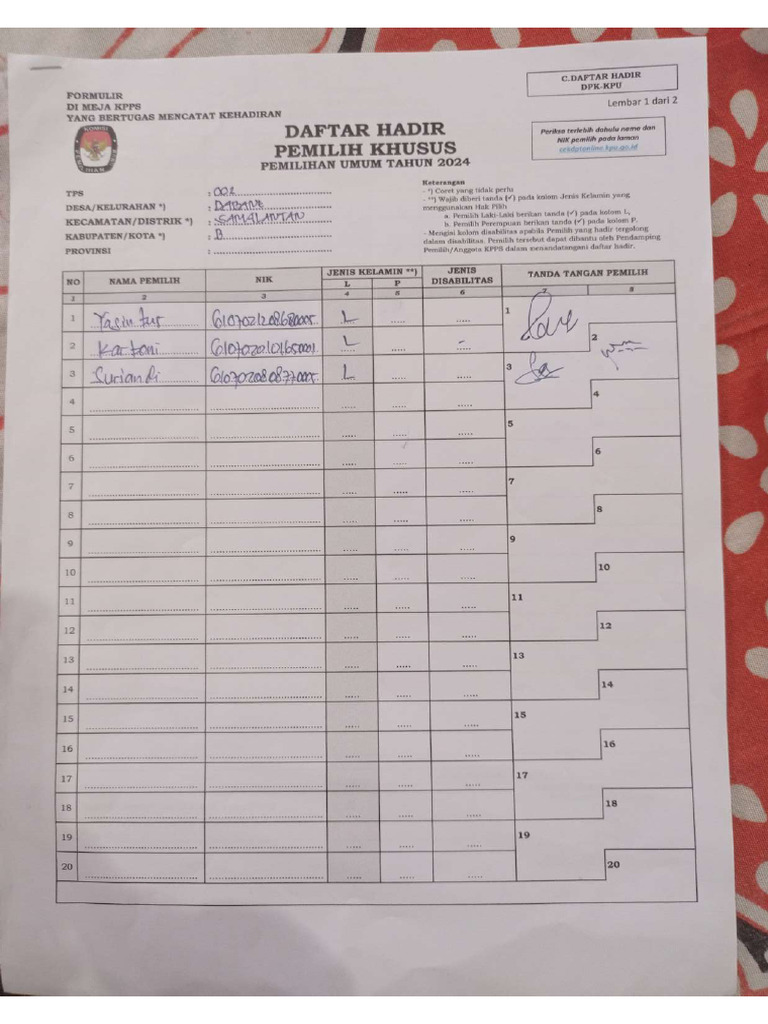 C.DAFTAR HADIR
DPK-KPU
Lembar 1 dari 2
FORMULIR
DI MEJA KPPS
YANG BERTUGAS MENCATAT KEHADIRAN
DAFTAR HADIR
PEMILIH KHUSUS
PEMILIHAN UMUM TAHUN 2024
Periksa terlebih dahulu nama dan
NIK pemilih pada laman
cekdptonline.kpu.go.id
TPS : 002
DESA/KELURAHAN *) :
KECAMATAN/DISTRIK *) : SAMALANTAN
KABUPATEN/KOTA *) : B
PROVINSI :
Keterangan
- *) Coret yang tidak perlu
- **) Wajib diberi tanda (✓) pada kolom Jenis Kelamin yang
menggunakan Hak Pilih:
a. Pemilih Laki-Laki berikan tanda (✓) pada kolom L,
b. Pemilih Perempuan berikan tanda (✓) pada kolom P.
- Mengisi kolom disabilitas apabila Pemilih yang hadir tergolong
dalam disabilitas. Pemilih tersebut dapat dibantu oleh Pendamping
Pemilih/Anggota KPPS dalam menandatangani daftar hadir.
NO NAMA PEMILIH NIK JENIS KELAMIN **) L P JENIS DISABILITAS TANDA TANGAN PEMILIH
1 2 3 4 5 6 7 8
1 L 1
2 Kartoni L - 2
3 Suriandi L 3
4 4
5 5
6 6
7 7
8 8
9 9
10 10
11 11
12 12
13 13
14 14
15 15
16 16
17 17
18 18
19 19
20 20